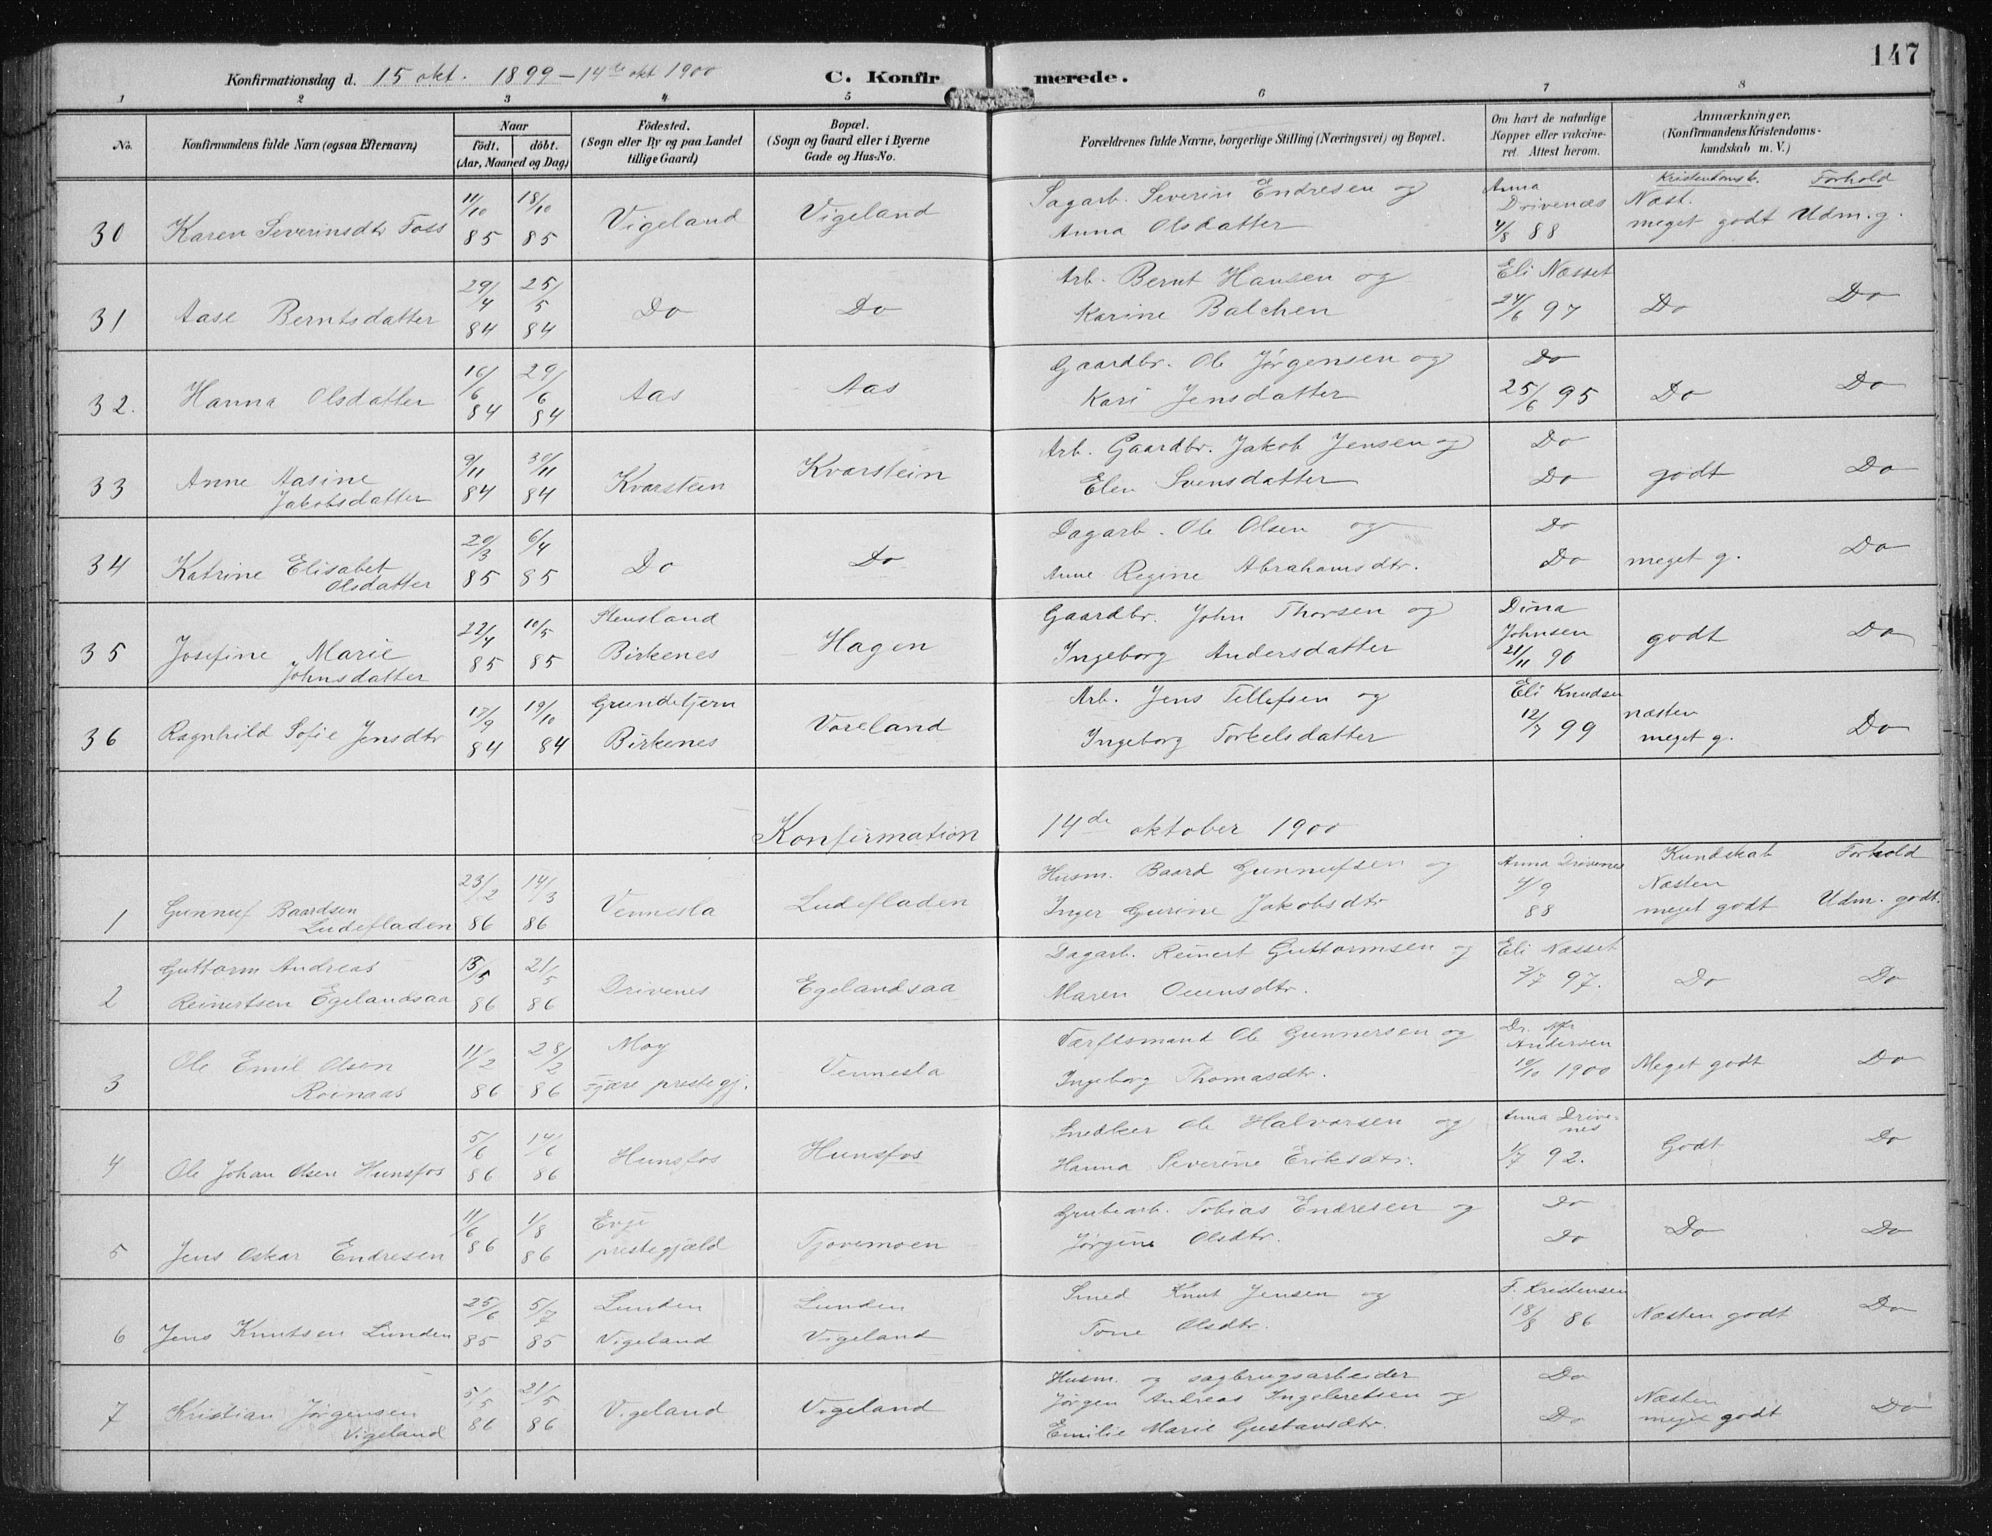 147
Konfirmationsdag d. 15 okt. 1899 – 14de okt 1900 C. Konfirmerede.
1 2 3 4 5 6 7 8
No. Konfirmandens fulde Navn (ogsaa Efternavn) Naar født. døbt. (Aar, Maaned og Dag) Fødested. (Sogn eller By og paa Landet tillige Gaard) Bopæl. (Sogn og Gaard eller i Byerne Gade og Hus-No. Forældrenes fulde Navne, borgerlige Stilling (Næringsvei) og Bopæl. Om havt de naturlige Kopper eller vakcineret. Attest herom. Anmærkninger. (Konfirmandens Kristendomskundskab m. V.)
Kristendomsk. Forhold
30 Karen Severinsdtr Foss 11/10 85 18/10 85 Vigeland Vigeland Sagarb. Severin Endresen og Anna Olsdatter Anna Drivenæs 4/8 88 Næst. meget godt Udm. g.
31 Aase Berntsdatter 29/4 84 25/5 84 Do Do Arb. Bernt Hansen og Karine Balchen Eli Næsset 24/6 97 Do Do
32. Hanna Olsdatter 16/6 84 29/6 84 Aas Aas Gaardbr. Ole Jørgensen og Kari Jensdatter Do 25/6 95 Do Do
33 Anne Aasine Jakobsdatter 9/11 84 30/11 84 Kvarstein Kvarstein Arb. Gaardbr. Jakob Jensen og Elen Svensdatter Do Do godt Do
34 Katrine Elisabet Olsdatter 20/3 85 6/4 85 Do Do Dagarb. Ole Olsen og Anne Regine Abrahamsdtr. Do Do meget g. Do
35 Josefine Marie Johnsdatter 22/4 85 10/5 85 Flensland Birkenes Hagen Gaardbr. John Thorsen og Ingeborg Andersdatter Dina Johnsen 21/11 90 godt Do
36 Ragnhild Sofie Jensdtr 17/9 84 19/10 84 Grundetjern Birkenes Voreland Arb. Jens Tellefsen og Ingeborg Torkelsdatter Eli Knudsen 12/7 99 næsten meget g. Do
Konfirmation 14de oktober 1900
Kundskab Forhold
1 Gunnuf Baardsen Ludefladen 23/2 86 14/3 86 Vennesla Ludefladen Husm. Baard Gunnufsen og Inger Gurine Jakobsdtr Anna Drivenes 4/9 88 Næsten meget godt Udm. godt.
2 Guttorm Andreas Reinertsen Egelandsaa 13/5 86 21/5 86 Drivenes Egelandsaa Dagarb. Reinert Guttormsen og Maren Ouensdtr. Eli Næsset 2/7 97. Do Do
3 Ole Emil Olsen Roinaas 11/2 86 28/2 86 Moy Fjære prestegj. Vennesla Tærftsmand Ole Gunnersen og Ingeborg Thomasdtr. Dr. Andersen 10/10 1900 Meget godt Do
4 Ole Johan Olsen Hunsfos 5/6 86 14/6 86 Hunsfos Hunsfos Snedker Ole Halvorsen og Hanna Severine Eriksdtr. Anna Drivenes 1/7 92. Godt Do
5 Jens Oskar Endresen 11/6 86 1/8 86 Evje prestegjæld Tjovemoen Grubearb. Tobias Endresen og Jørgine Olsdtr. Do Do Do Do
6 Jens Knutsen Lunden 25/6 85 5/7 85 Lunden Vigeland Lunden Vigeland Smed Knut Jensen og Tone Olsdtr. F. Kristensen 18/8 86 Næsten godt Do
7 Kristian Jørgensen Vigeland 5/5 86 21/5 86 Vigeland Vigeland Husm. og sagbrugsarbeider Jørgen Andreas Ingebretsen og Emilie Marie Gustavsdtr. Do Do Næsten meget godt Do